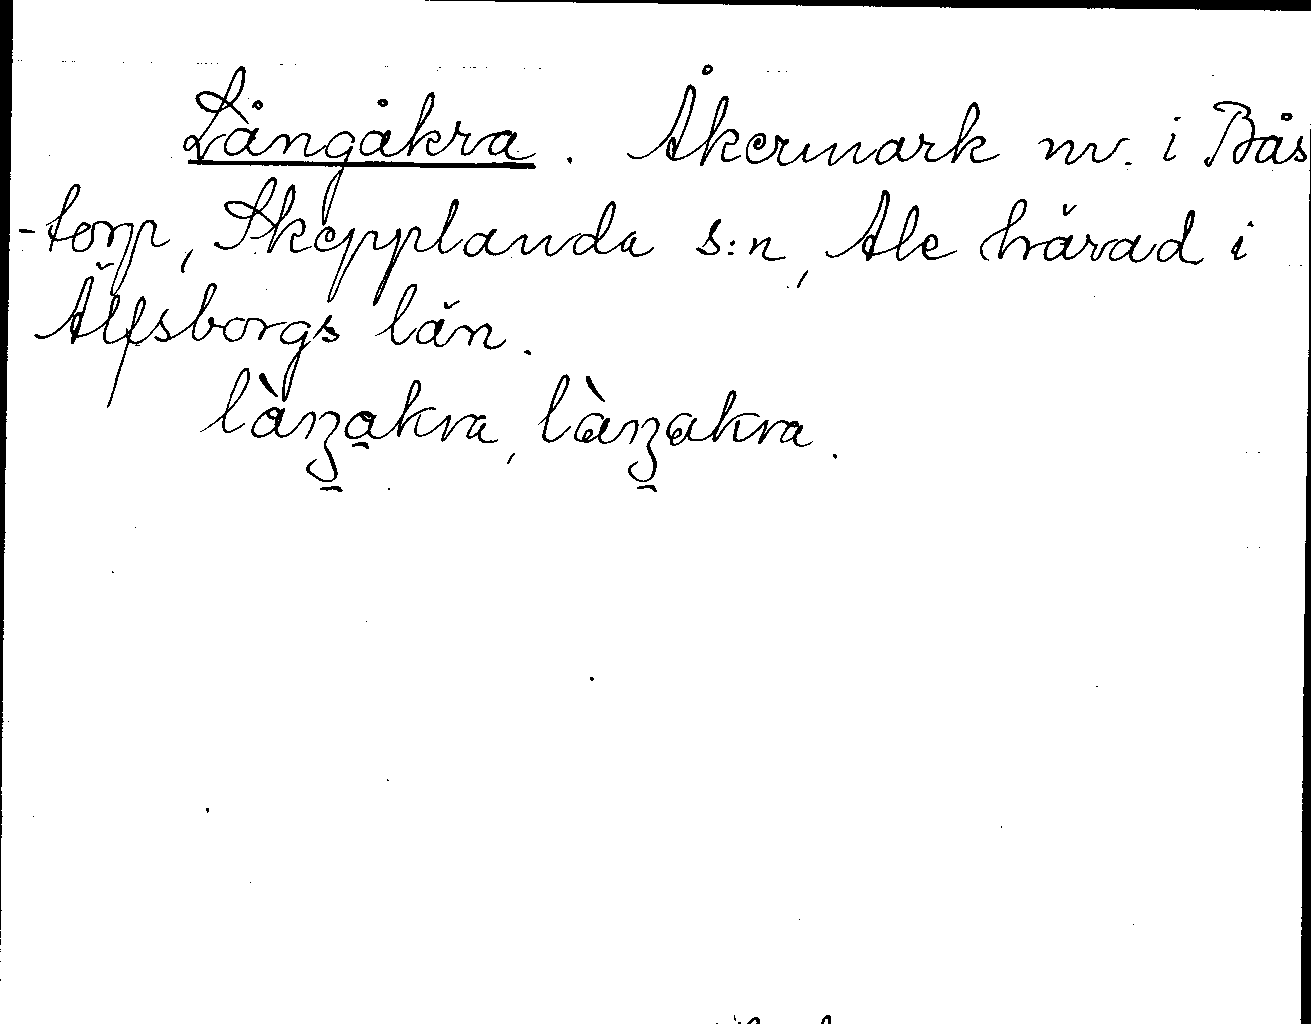 Långåkra. Åkermark nv. i Bås
-torp, Skepplanda s:n, Ale härad i
Älfsborgs län.
làŋakra, làŋakra.